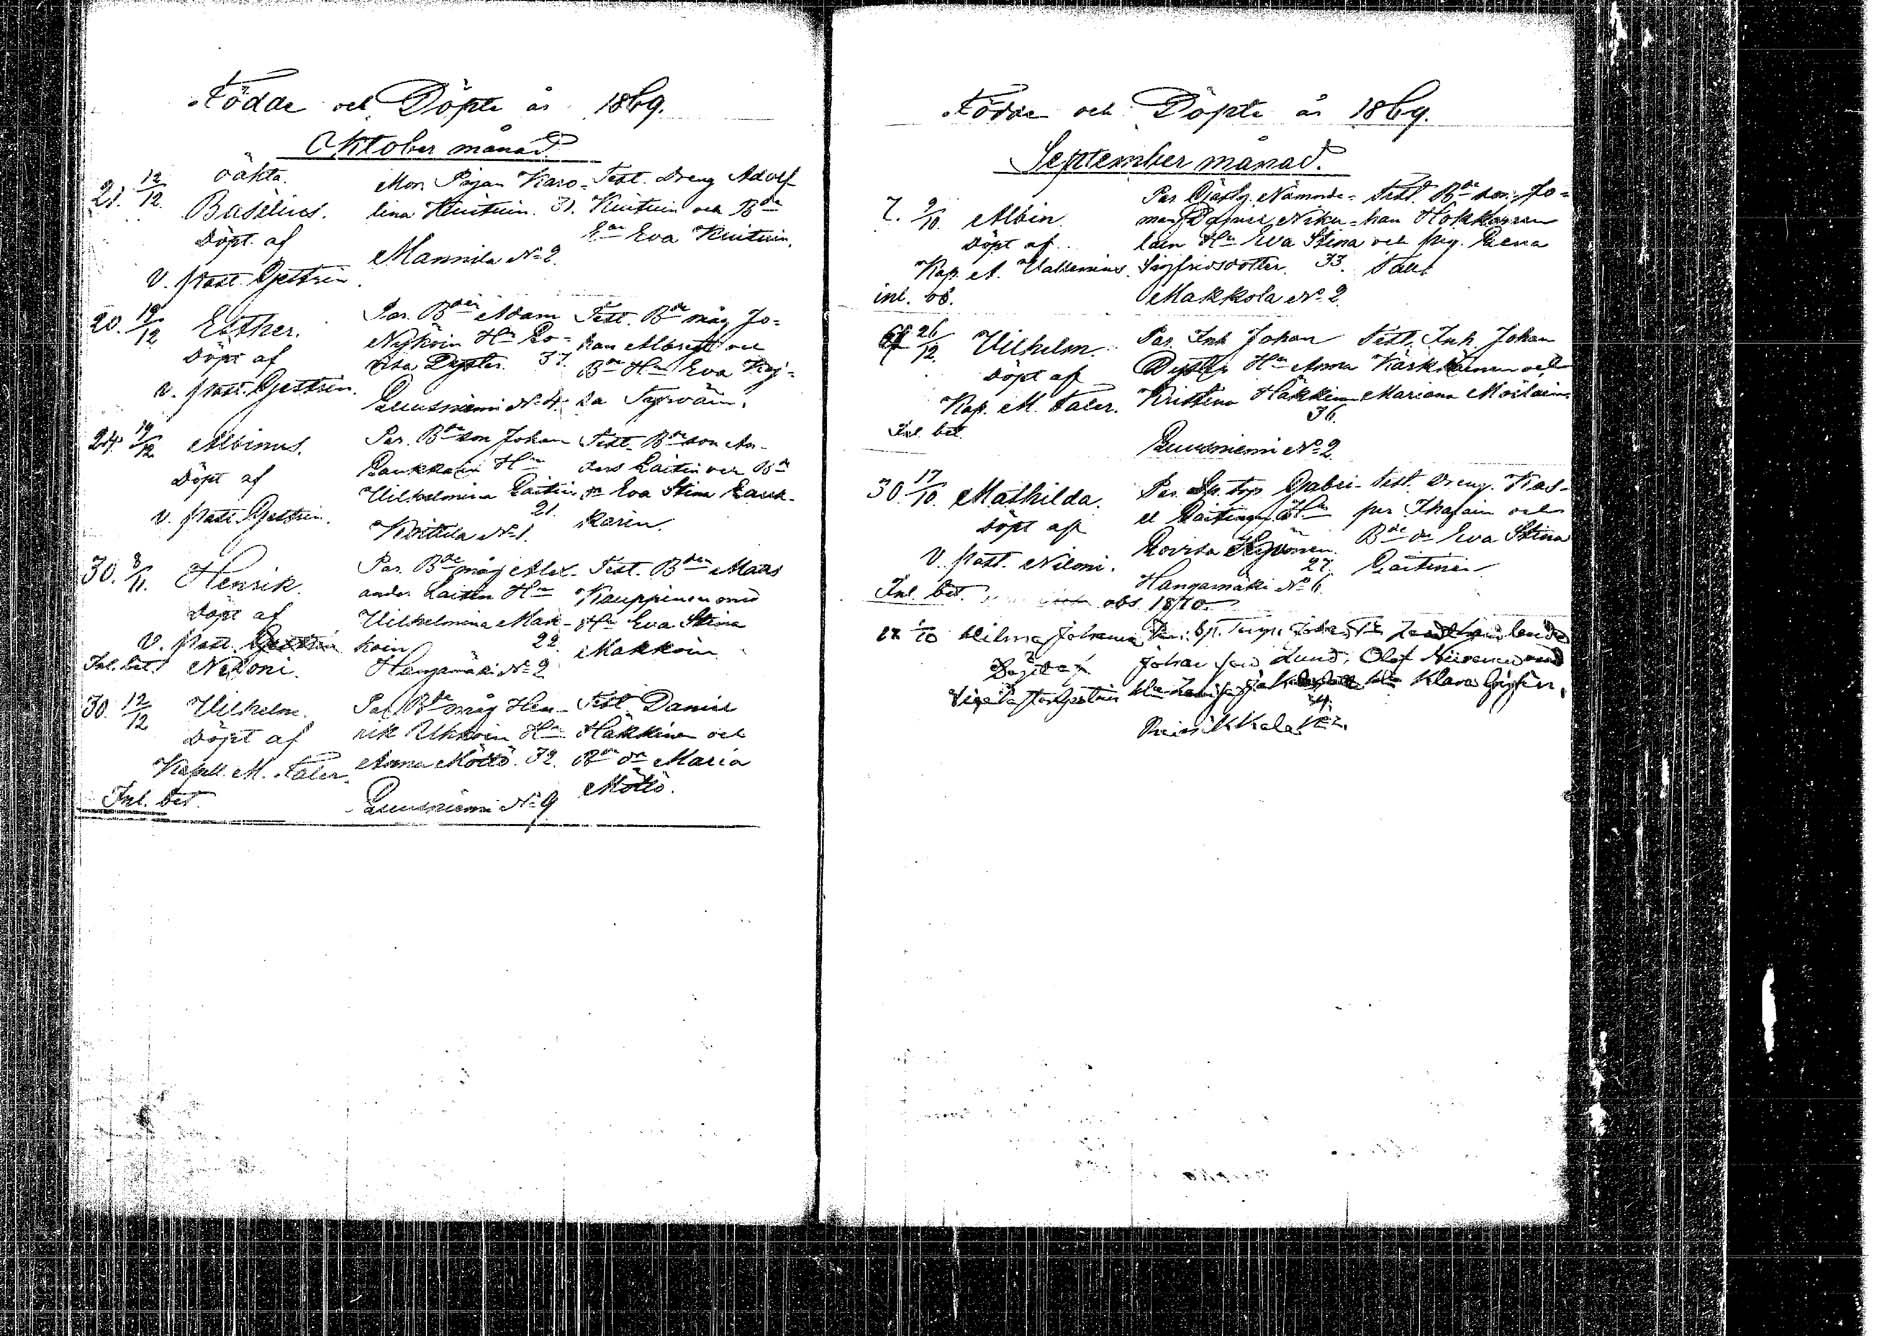 Födde och Döpte år 1869.
Oktober månad.
oäkta.
21. 12/12. Basilius.
Döpt af
v. past. Gestrin.
Mor. Pigan Karo-
lina Kuituin. 31.
Mannila No 2.
Test. Dreng Adolf
Kuituin och Bde
Eva Kuituin.
20. 12/12 Esther.
Döpt af
v. past. Gestrin.
Par. Bden Adam
Nyköin Hu Lo-
visa Dyster. 37.
Luusniemi No 4.
Test. Bde måg Jo-
han Albrecht och
Bde Hu Eva Kaj-
sa
24. 19/12 Albinus.
Döpt af
v. past. Gestrin.
Par. Bde son Johan
Laukkarin Hu
Vilhelmina Laitin
21.
Kottila No 1.
Test. Bde son An-
ders Laitin och Bde
dr Eva Stina Lauk-
karin.
30. 8/11. Henrik.
Döpt af
V. Past. Gestrin
Inl. bet. Niloni.
Par. Bde måg Alex-
ander Laitin Hu
Vilhelmina Mak-
koin 22
Hangamäki No 2
Test. Bden Mats
Kauppinen med
Hu Eva Stina
Makkoin
30. 12/12 Vilhelm.
Döpt af
Kapell. M. Faler.
Inl. bet.
Par Bde måg Hen-
rik Ukkoin Hu
Anna Möttö. 32.
Luusniemi No 9
Test Daniel
Häkkinen och
Bde dr Maria
Möttö.
Födde och Döpte år 1869.
September månad.
7. 9/10. Albin.
Döpt af
Kap. A. Vallenius.
inl. ob.
Par Nämnde-
man Nisku-
lain Hu Eva Stina
Sigfridsdotter. 33.
Makkola No 2.
Test. Bde son Jo-
han Hokkanen
och pig. Lena
26/12. Vilhelm.
Döpt af
Kap. M. Faler.
Inl. bet.
Par. Inh Johan
Dyster Hu Anna
Kristina Häkkinen
36.
Luusniemi No 2.
Test. Inh. Johan
Kärkkäinen och
Mariana
30. 17/10. Mathilda.
Döpt af
V. past. Niloni.
Inl. bet. obs 1870
Par. Sp. torp. Gabri-
el Laitinen Hu
Lovisa
27.
Hangamäki No 6.
Test. Dreng. Kas-
per Ikäläin och
Bde dr Eva Stina
Laitinen.
1/10 Hilma Johanna
Döpt af
Johan Lund,
Olof Niiranen med
Hu Klara
No 2.